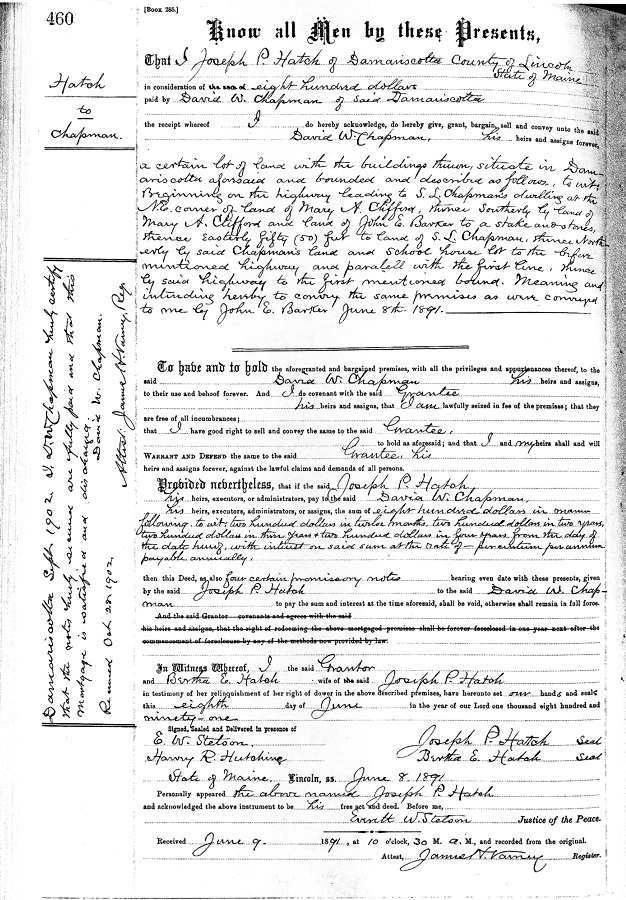 460
[Book 285.]
Know all Men by these Presents,
Hatch
to
Chapman.
That I Joseph P. Hatch of Damariscotta County of Lincoln
State of Maine
in consideration of the sum of eight hundred dollars
paid by David W. Chapman of said Damariscotta
the receipt whereof I do hereby acknowledge, do hereby give, grant, bargain, sell and convey unto the said
David W. Chapman, his heirs and assigns forever,
a certain lot of land with the buildings thereon, situate in Dam-
ariscotta aforesaid and bounded and described as follows, to wit:
Beginning on the highway leading to S. L. Chapman's dwelling at the
N.E. corner of land of Mary A. Clifford, thence Southerly by land of
Mary A. Clifford and land of John E. Barker to a stake and stones,
thence Easterly fifty (50) feet to land of S. L. Chapman, thence North-
erly by said Chapman's land and School house lot to the before
mentioned highway and paralell with the first line, thence
by said highway to the first mentioned bound. Meaning and
intending hereby to convey the same premises as were conveyed
to me by John E. Barker June 8th 1891.
To have and to hold the aforegranted and bargained premises, with all the privileges and appurtenances thereof, to the
said David W. Chapman his heirs and assigns,
to their use and behoof forever. And I do covenant with the said Grantee
his heirs and assigns, that I am lawfully seized in fee of the premises; that they
are free of all incumbrances;
that I have good right to sell and convey the same to the said Grantee,
to hold as aforesaid; and that I and my heirs shall and will
Warrant and Defend the same to the said Grantee, his
heirs and assigns forever, against the lawful claims and demands of all persons.
Provided nevertheless, that if the said Joseph P. Hatch
his heirs, executors, or administrators, pay to the said David W. Chapman,
his heirs, executors, administrators, or assigns, the sum of eight hundred dollars in manner
following to wit; two hundred dollars in twelve months, two hundred dollars in two years,
two hundred dollars in three years & two hundred dollars in four years from the day of
the date hereof, with interest on said sum at the rate of — per centum per annum
payable annually.
then this Deed, as also four certain promissory notes bearing even date with these presents, given
by the said Joseph P. Hatch to the said David W. Chap-
man to pay the sum and interest at the time aforesaid, shall be void, otherwise shall remain in full force.
And the said Grantor covenants and agrees with the said
his heirs and assigns, that the right of redeeming the above mortgaged premises shall be forever foreclosed in one year next after the
commencement of foreclosure by any of the methods now provided by law.
In Witness Whereof, I the said Grantor
and Bertha E. Hatch wife of the said Joseph P. Hatch
in testimony of her relinquishment of her right of dower in the above described premises, have hereunto set our hands and seals
this eighth day of June in the year of our Lord one thousand eight hundred and
ninety-one
Signed, Sealed and Delivered in presence of
E. W. Stetson. Joseph P. Hatch Seal
Harry R. Hutchins Bertha E. Hatch Seal
State of Maine, Lincoln, ss. June 8, 1891
Personally appeared the above named Joseph P. Hatch
and acknowledged the above instrument to be his free act and deed. Before me,
Everett W. Stetson Justice of the Peace.
Received June 9. 1891, at 10 o'clock, 30 M. A. M., and recorded from the original.
Attest, James N. Varney Register.
Damariscotta Sept 1902 I, D. W. Chapman hereby certify
that the notes hereby secured are fully paid and that this
mortgage is satisfied and discharged.
David W. Chapman.
Received Oct. 20. 1902. Attest: James N. Varney, Reg.